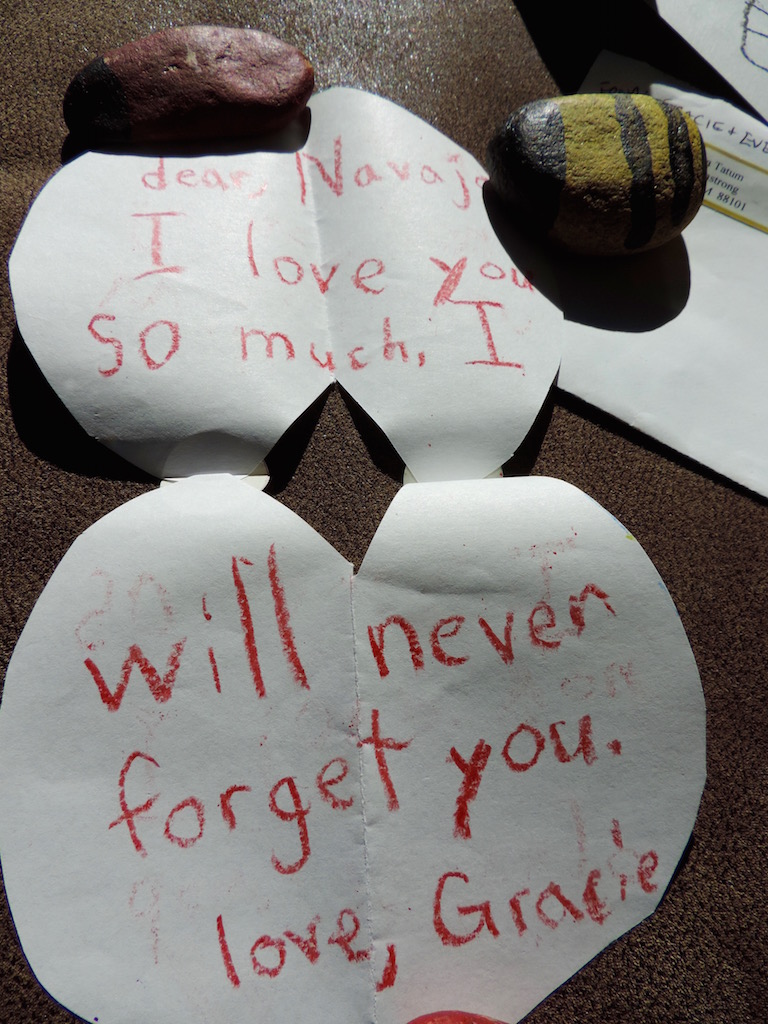 dear, Navajo
I love you
so much, I
will never
forget you.
love, Gracie
Tatum
88101